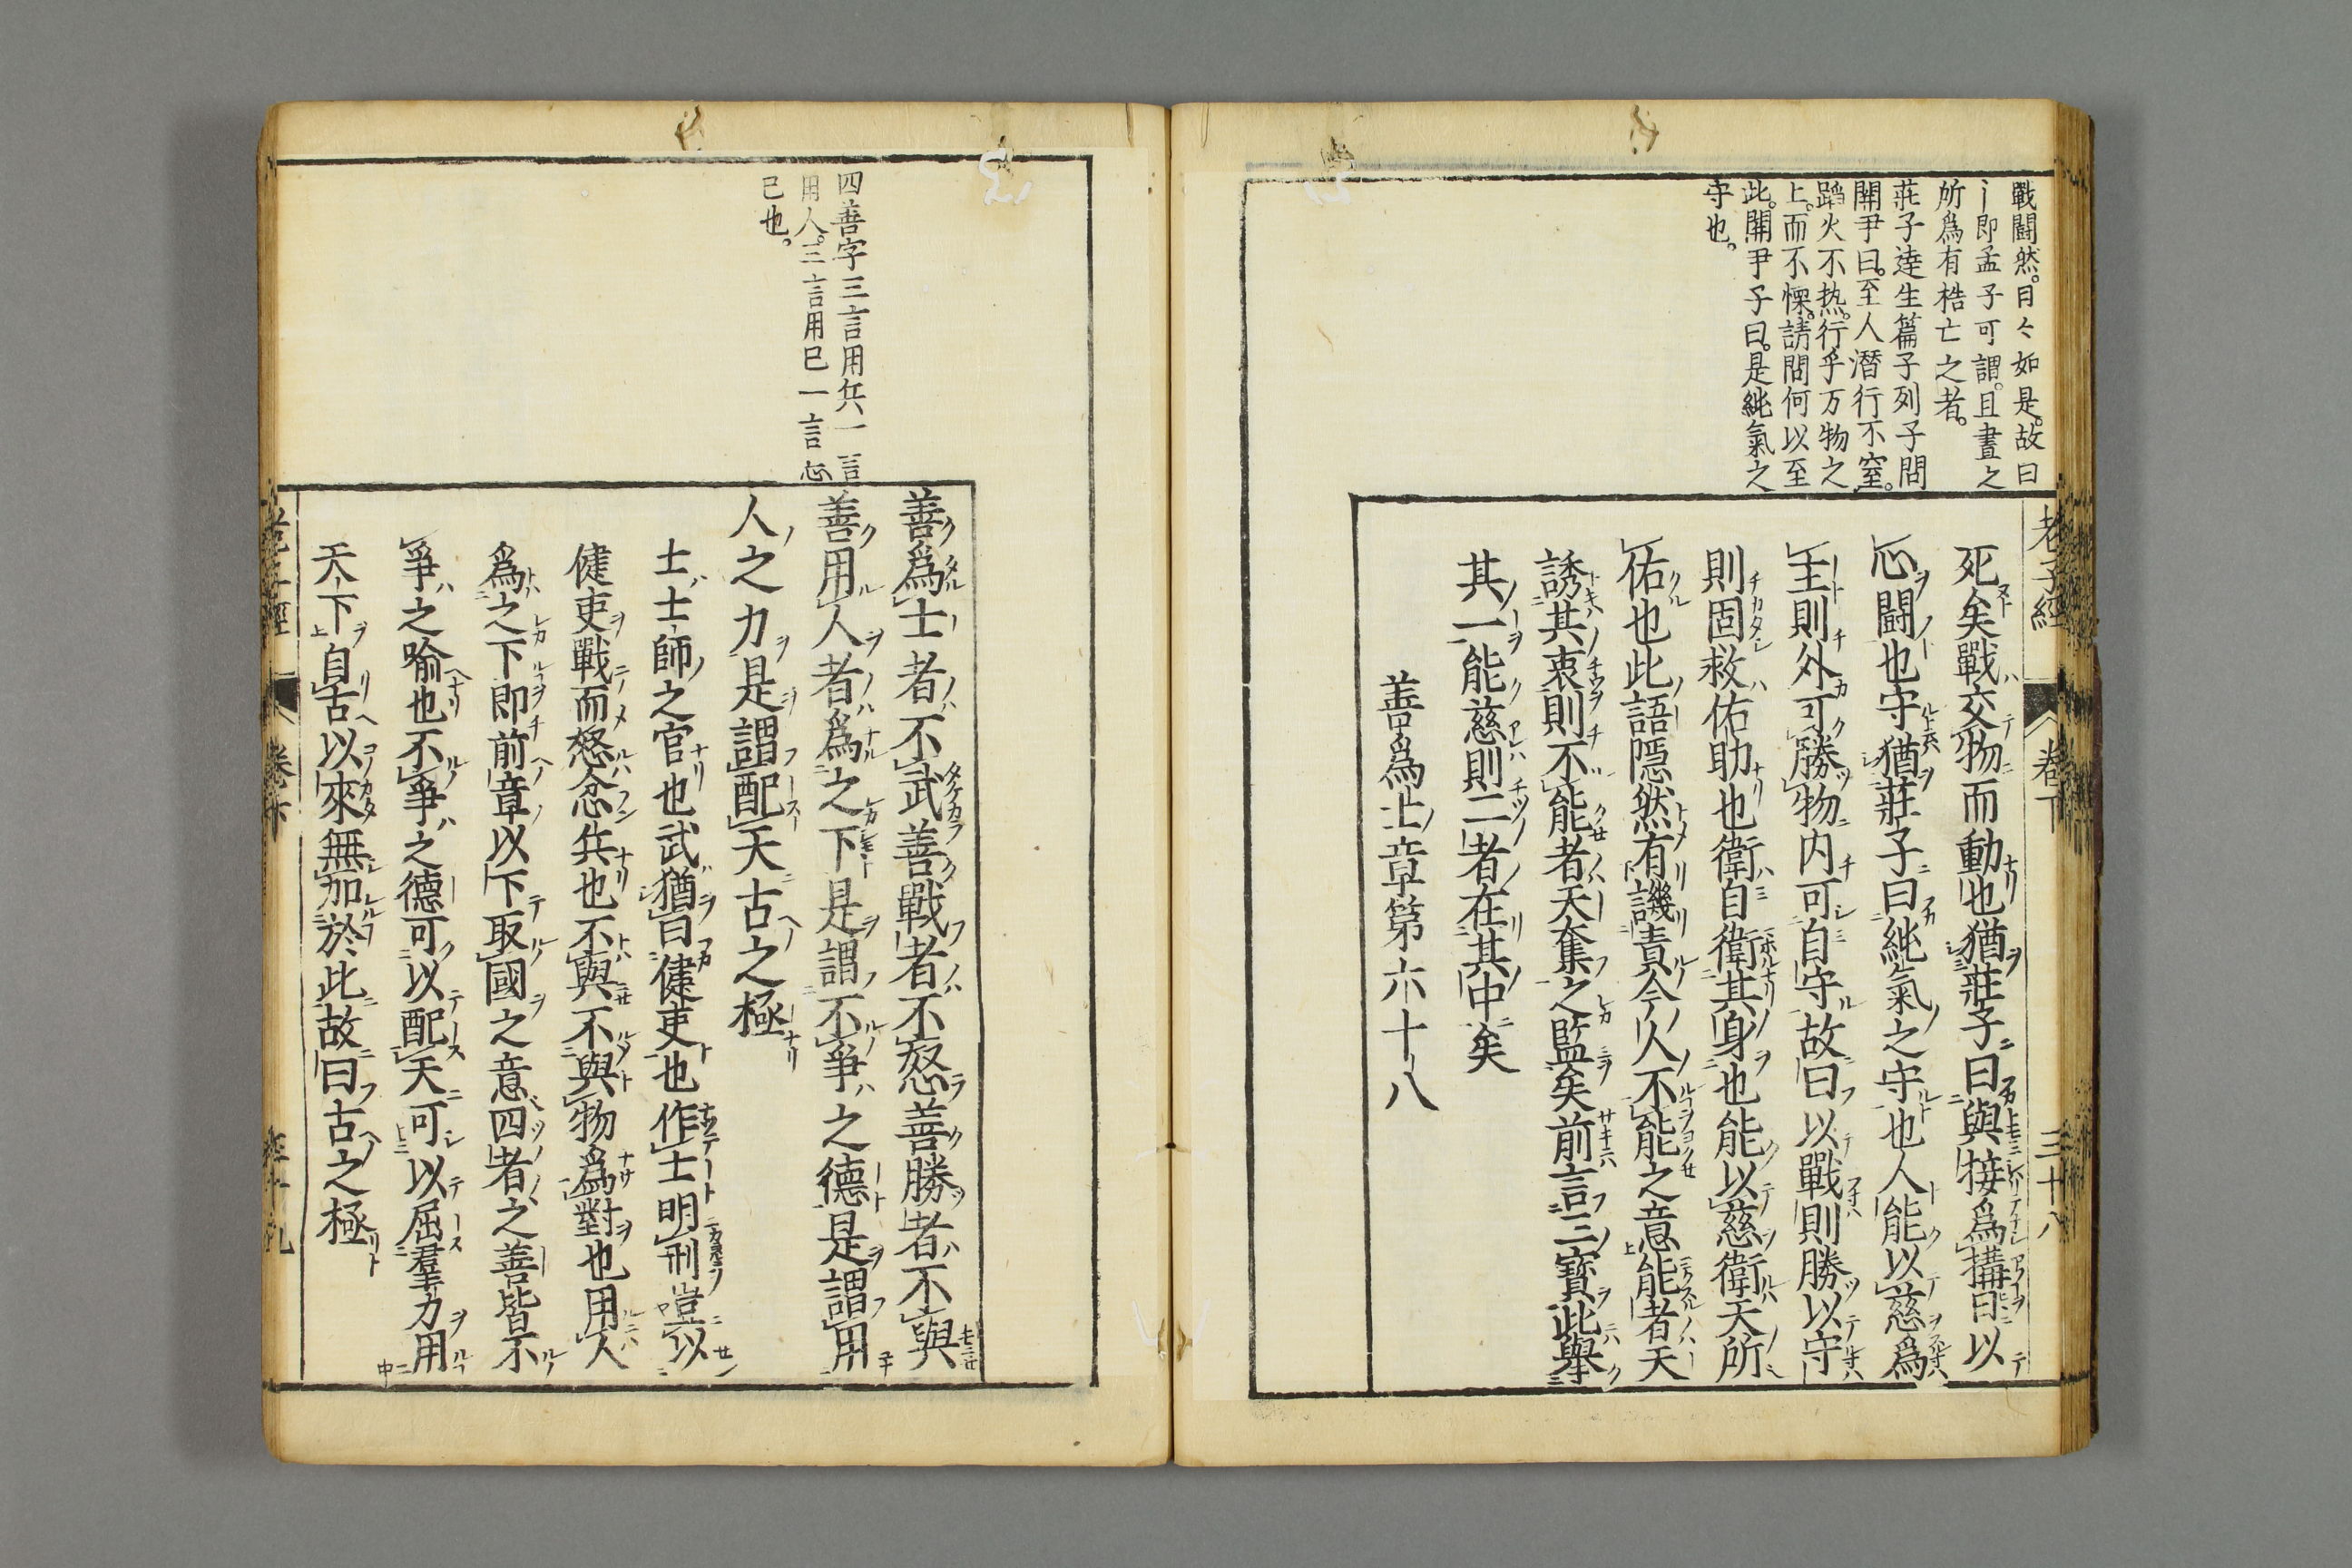 戰闘然。日々如是。故曰
〡即孟子可謂。且晝之
所爲有梏亡之者。
莊子達生篇子列子問
関尹曰。至人潛行不窒。
蹈火不热。行乎万物之
上。而不慄。請問何以至
此。関尹子曰。是純氣之
守也。
老子經 卷下 三十八
死矣戰交物而動也猶莊子曰與接爲搆日以
心闘也守猶莊子曰純氣之守也人能以慈爲
主則外可勝物内可自守故曰以戰則勝以守
則固救佑助也衛自衛其身也能以慈衛天所
佑也此語隠然有譏責今人不能之意能者天
誘其衷則不能者天奪之監矣前言三寶此舉
其一能慈則二者在其中矣
善爲士章第六十八
四善字三言用兵一言
用人。三言用己一言忘
己也。
善爲士者不武善戰者不怒善勝者不與
善用人者爲之下是謂不爭之德是謂用
人之力是謂配天古之極
士士師之官也武猶曰健吏也作士明刑豈以
健吏戰而怒忿兵也不與不與物爲對也用人
爲之下即前章以下取國之意四者之善皆不
爭之喻也不爭之德可以配天可以屈羣力用
天下自古以來無加於此故曰古之極